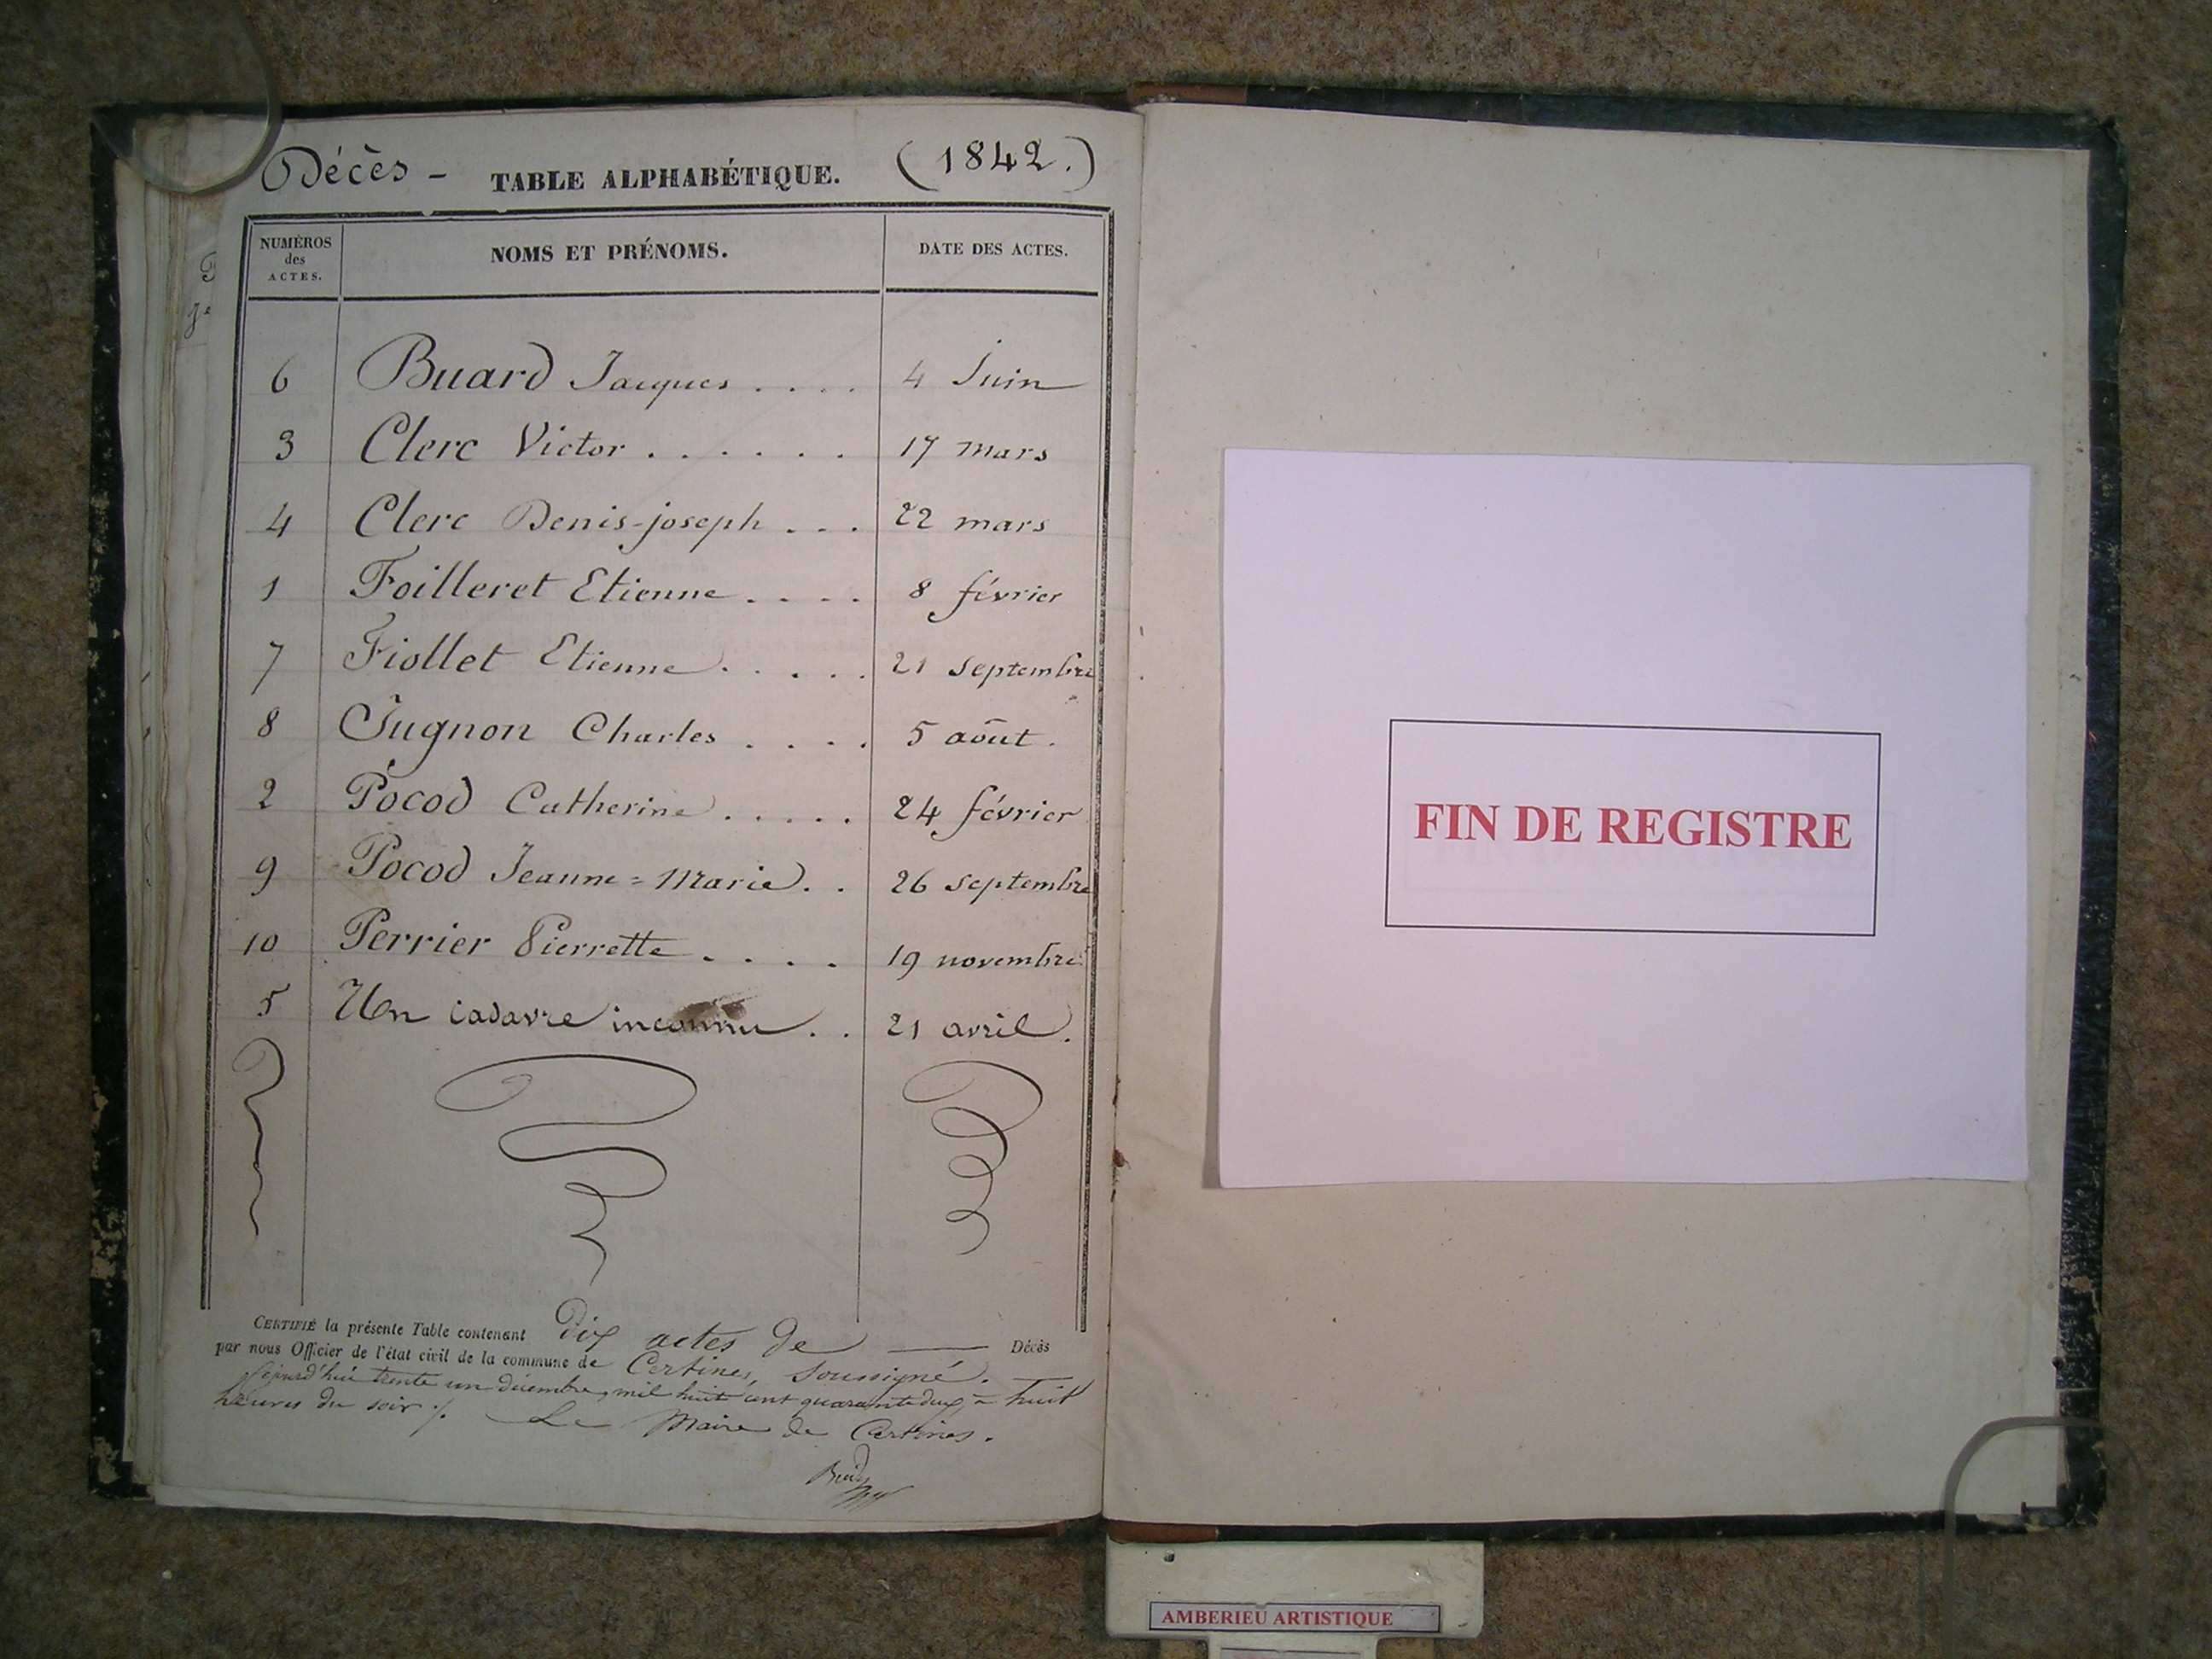 Décès - TABLE ALPHABÉTIQUE. (1842.)
NUMÉROS des ACTES. NOMS ET PRÉNOMS. DATE DES ACTES.
6 Buard Jacques . . . . 4 Juin
3 Clerc Victor . . . . . . 17 mars
4 Clerc Denis-joseph . . . 22 mars
1 Foilleret Etienne . . . . 8 février
7 Fiollet Etienne . . . . . 21 septembre
8 Jugnon Charles . . . . 5 août .
2 Pocod Catherine . . . . . 24 février
9 Pocod Jeanne = Marie . . 26 septembre
10 Perrier Pierrette . . . . 19 novembre
5 Un cadavre inconnu . . 21 avril .
CERTIFIÉ la présente Table contenant Dix actes de Décès
par nous Officier de l'état civil de la commune de Certines, soussigné.
trente un décembre, mil huit cent quarante deux, à huit
heures du soir ./. Le Maire de Certines.
FIN DE REGISTRE
AMBERIEU ARTISTIQUE